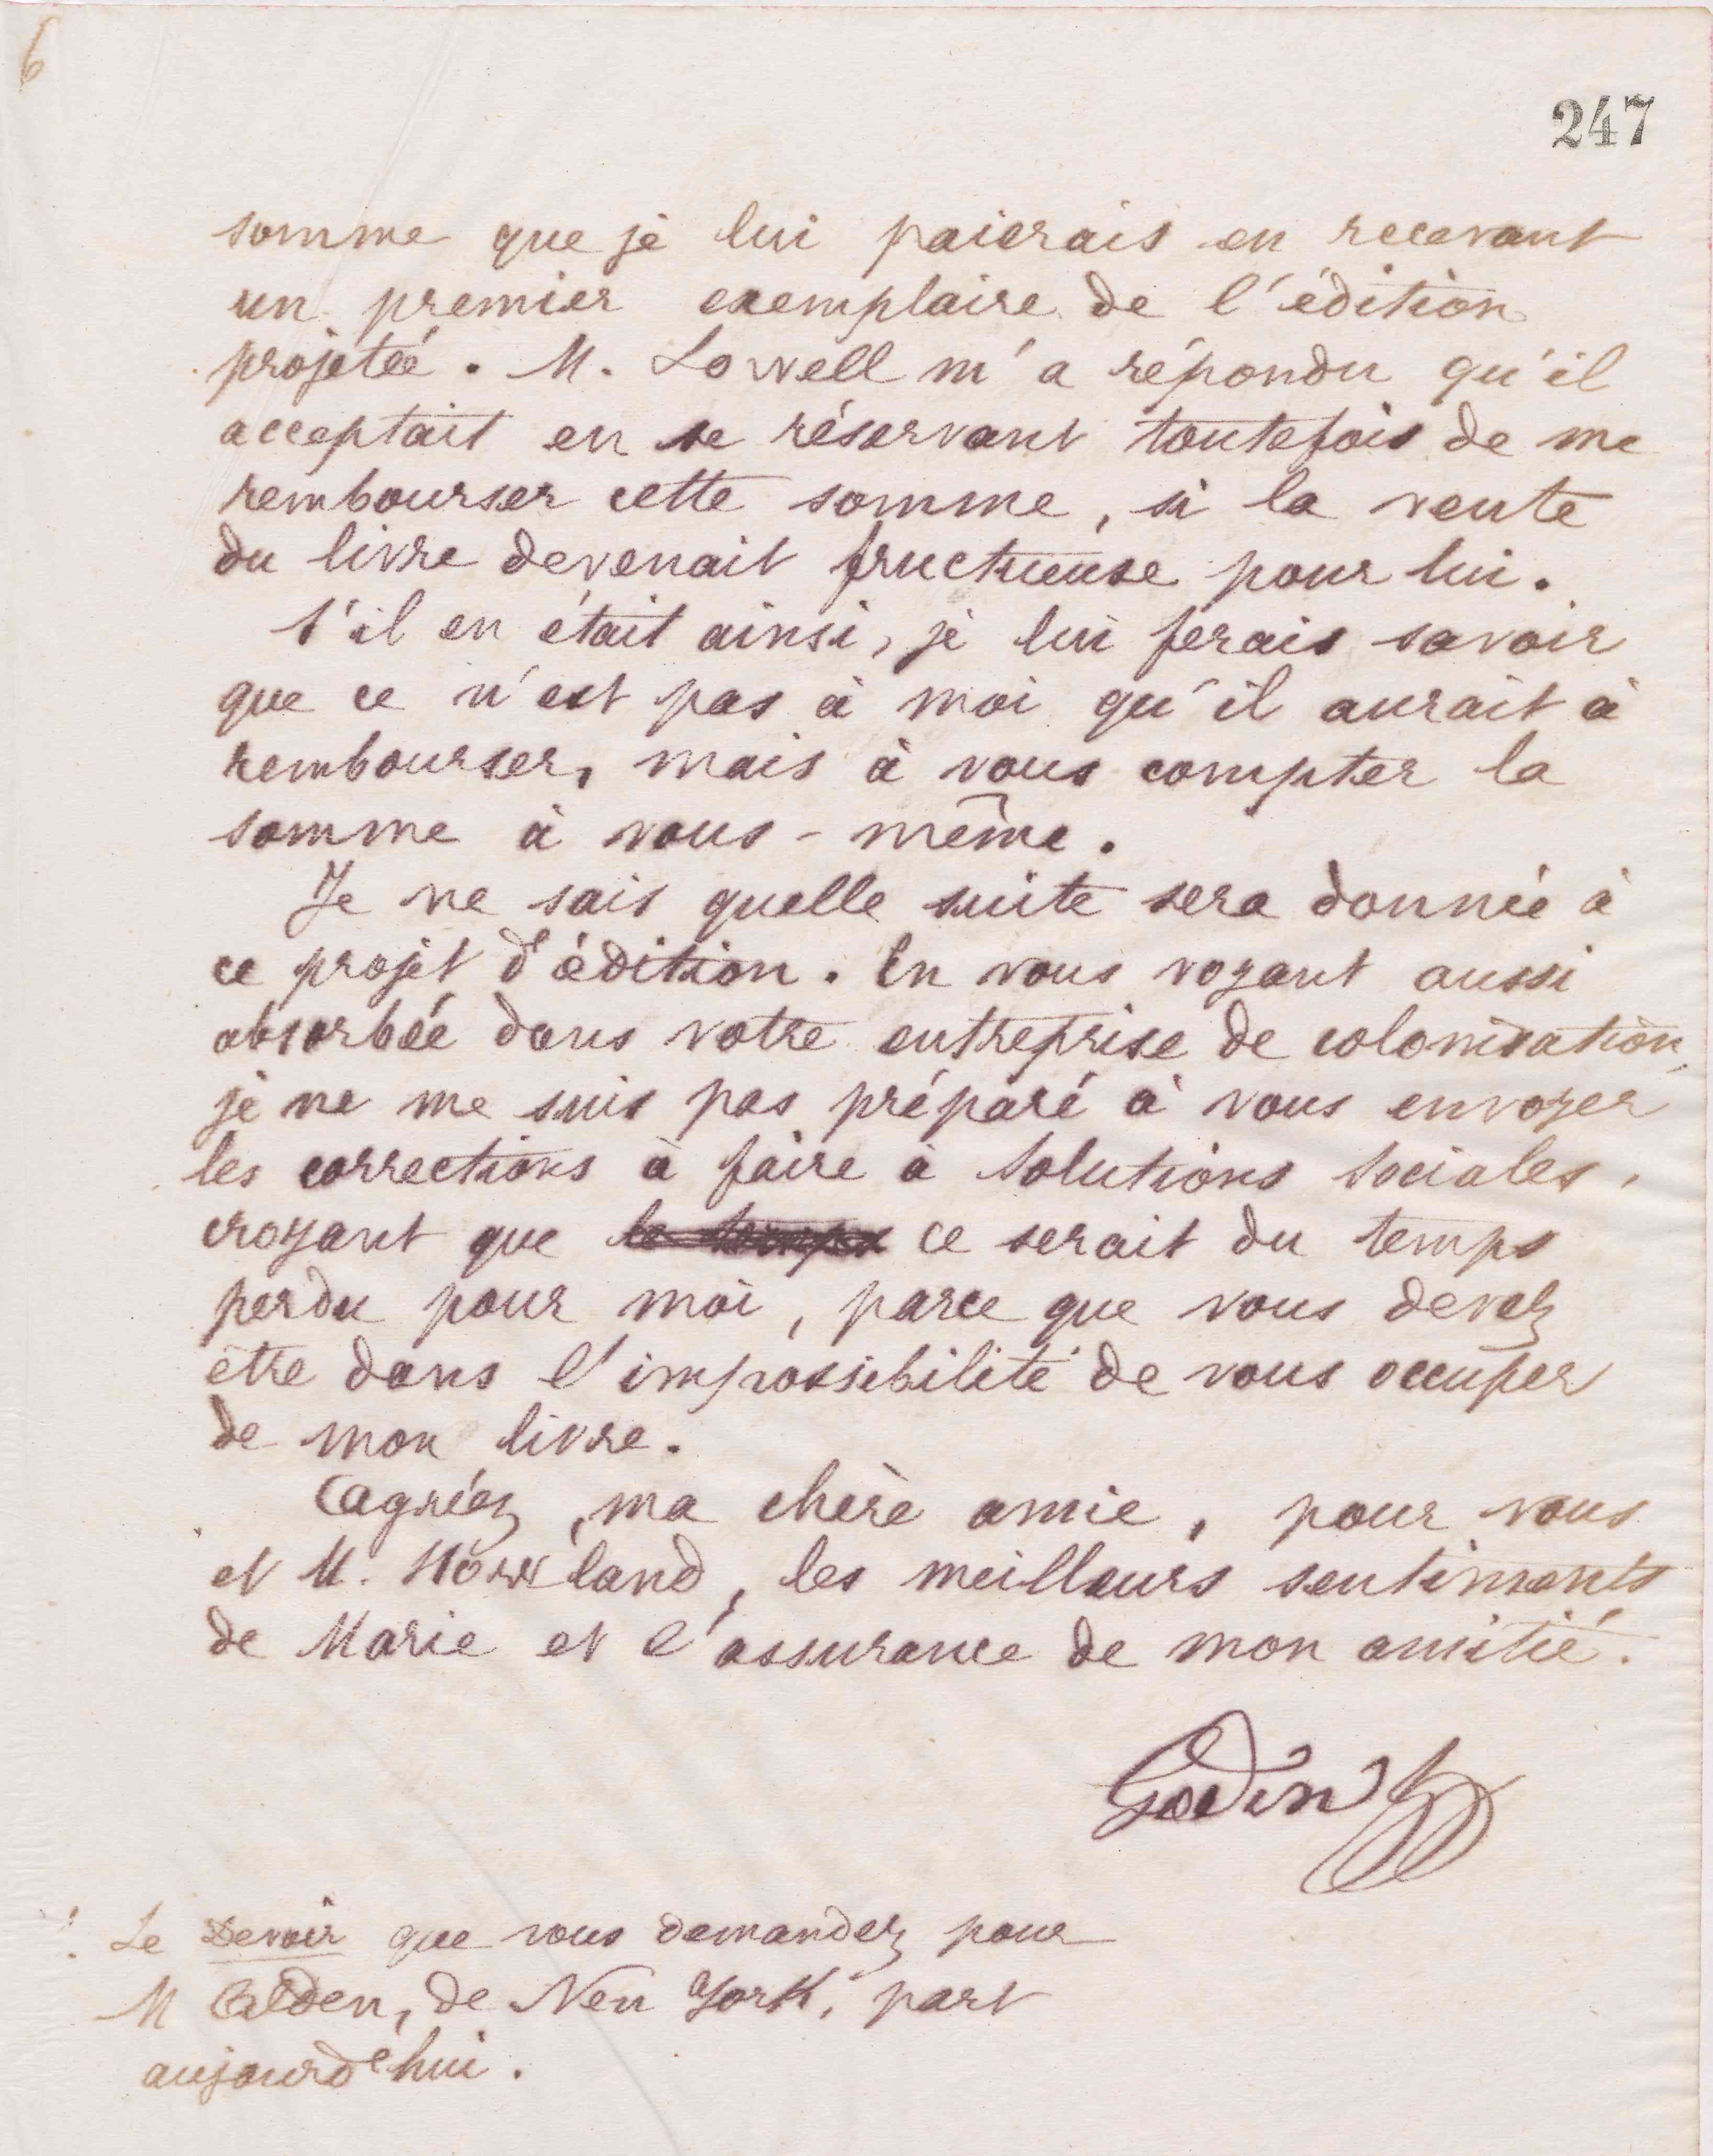 6
247
somme que je lui paierais en recevant
un premier exemplaire de l'édition
projetée. M. Lowell m'a répondu qu'il
acceptait en se réservant toutefois de me
rembourser cette somme, si la vente
du livre devenait fructueuse pour lui.
S'il en était ainsi, je lui ferais savoir
que ce n'est pas à moi qu'il aurait à
rembourser, mais à vous compter la
somme à vous-même.
Je ne sais quelle suite sera donnée à
ce projet d'édition. En vous voyant aussi
absorbée dans votre entreprise de colonisation,
je ne me suis pas préparé à vous envoyer
les corrections à faire à Solutions Sociales,
croyant que le temps ce serait du temps
perdu pour moi, parce que vous devez
être dans l'impossibilité de vous occuper
de mon livre.
Agréez, ma chère amie, pour vous
et M. Howland, les meilleurs sentiments
de Marie et l'assurance de mon amitié.
Godin
Le Devoir que vous demandez pour
M Alden, de New York, part
aujourd'hui.